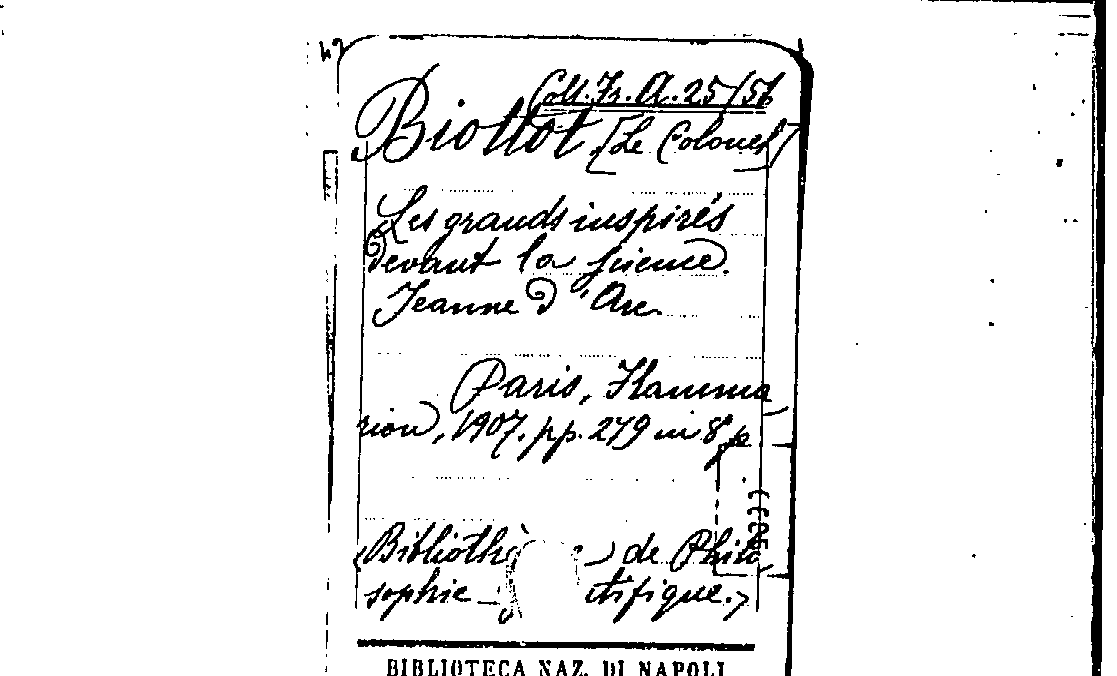 Coll. Fr. A. 25/56
Biottot [Le Colonel]
Les grands inspirés
devant la science.
Jeanne d'Arc
Paris, Flamma
rion, 1907. pp. 279 in 8º
Bibliothè de Philo
sophie
BIBLIOTECA NAZ. DI NAPOLI